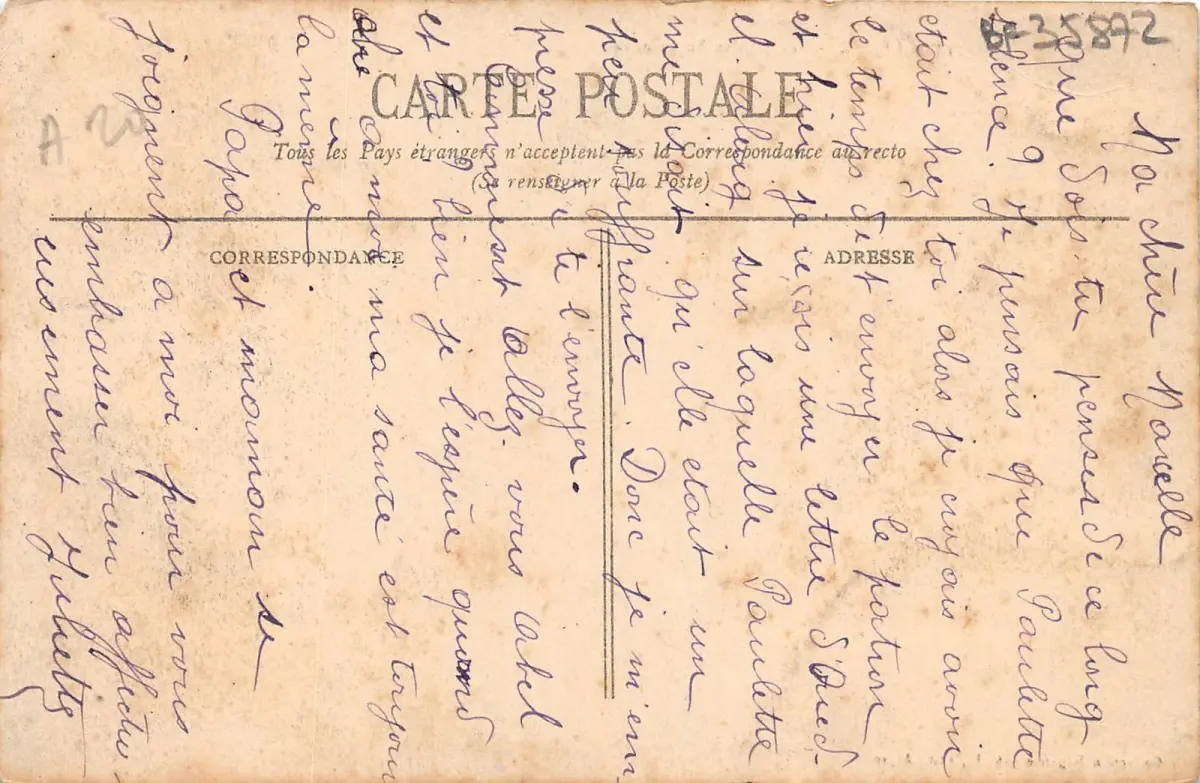 35872
A 20
CARTE POSTALE
Tous les Pays étrangers n'acceptent pas la Correspondance au recto
(Se renseigner à la Poste)
CORRESPONDANCE
ADRESSE
Ma chère Marcelle
que dois-tu penser de ce long
silence ? Je pensais que Paulette
était chez toi alors je croyais avoir
le temps de t'envoyer le patron
et hier je reçois une lettre d'Oued
el aleug sur laquelle Paulette
me disait qu'elle était un
peu souffrante. Donc je m'em
presse de te l'envoyer.
Comment allez-vous abel
et toi ? bien je l'espère quand
a moi ma santé est toujours
la même
Papa et maman se
joignent a moi pour vous
embrasser bien affectu
eusement Juliette